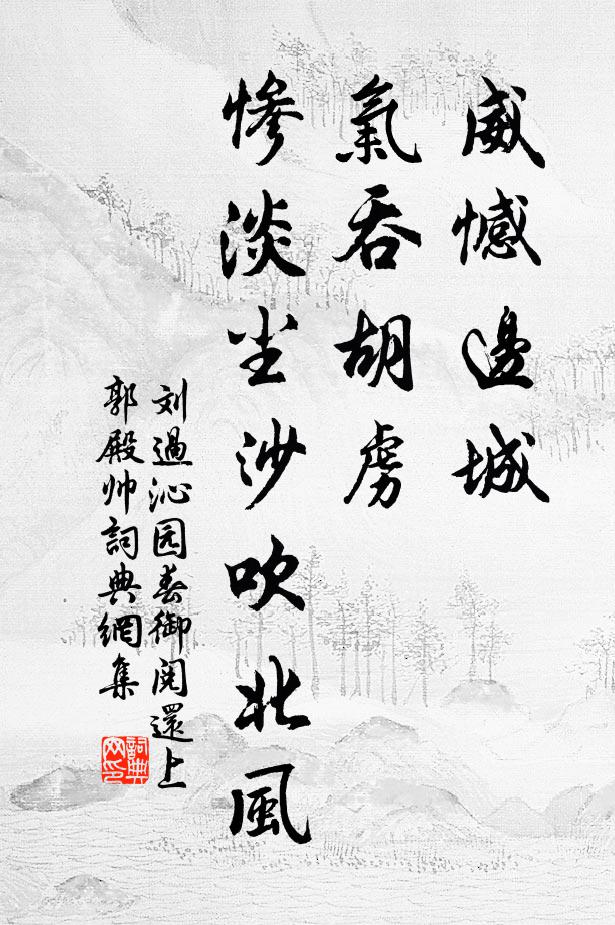 威憾邊城
氣吞胡虜
慘淡尘沙吹北風
刘過沁园春御閱還上
郭殿帅詞典網集
詞典
网印